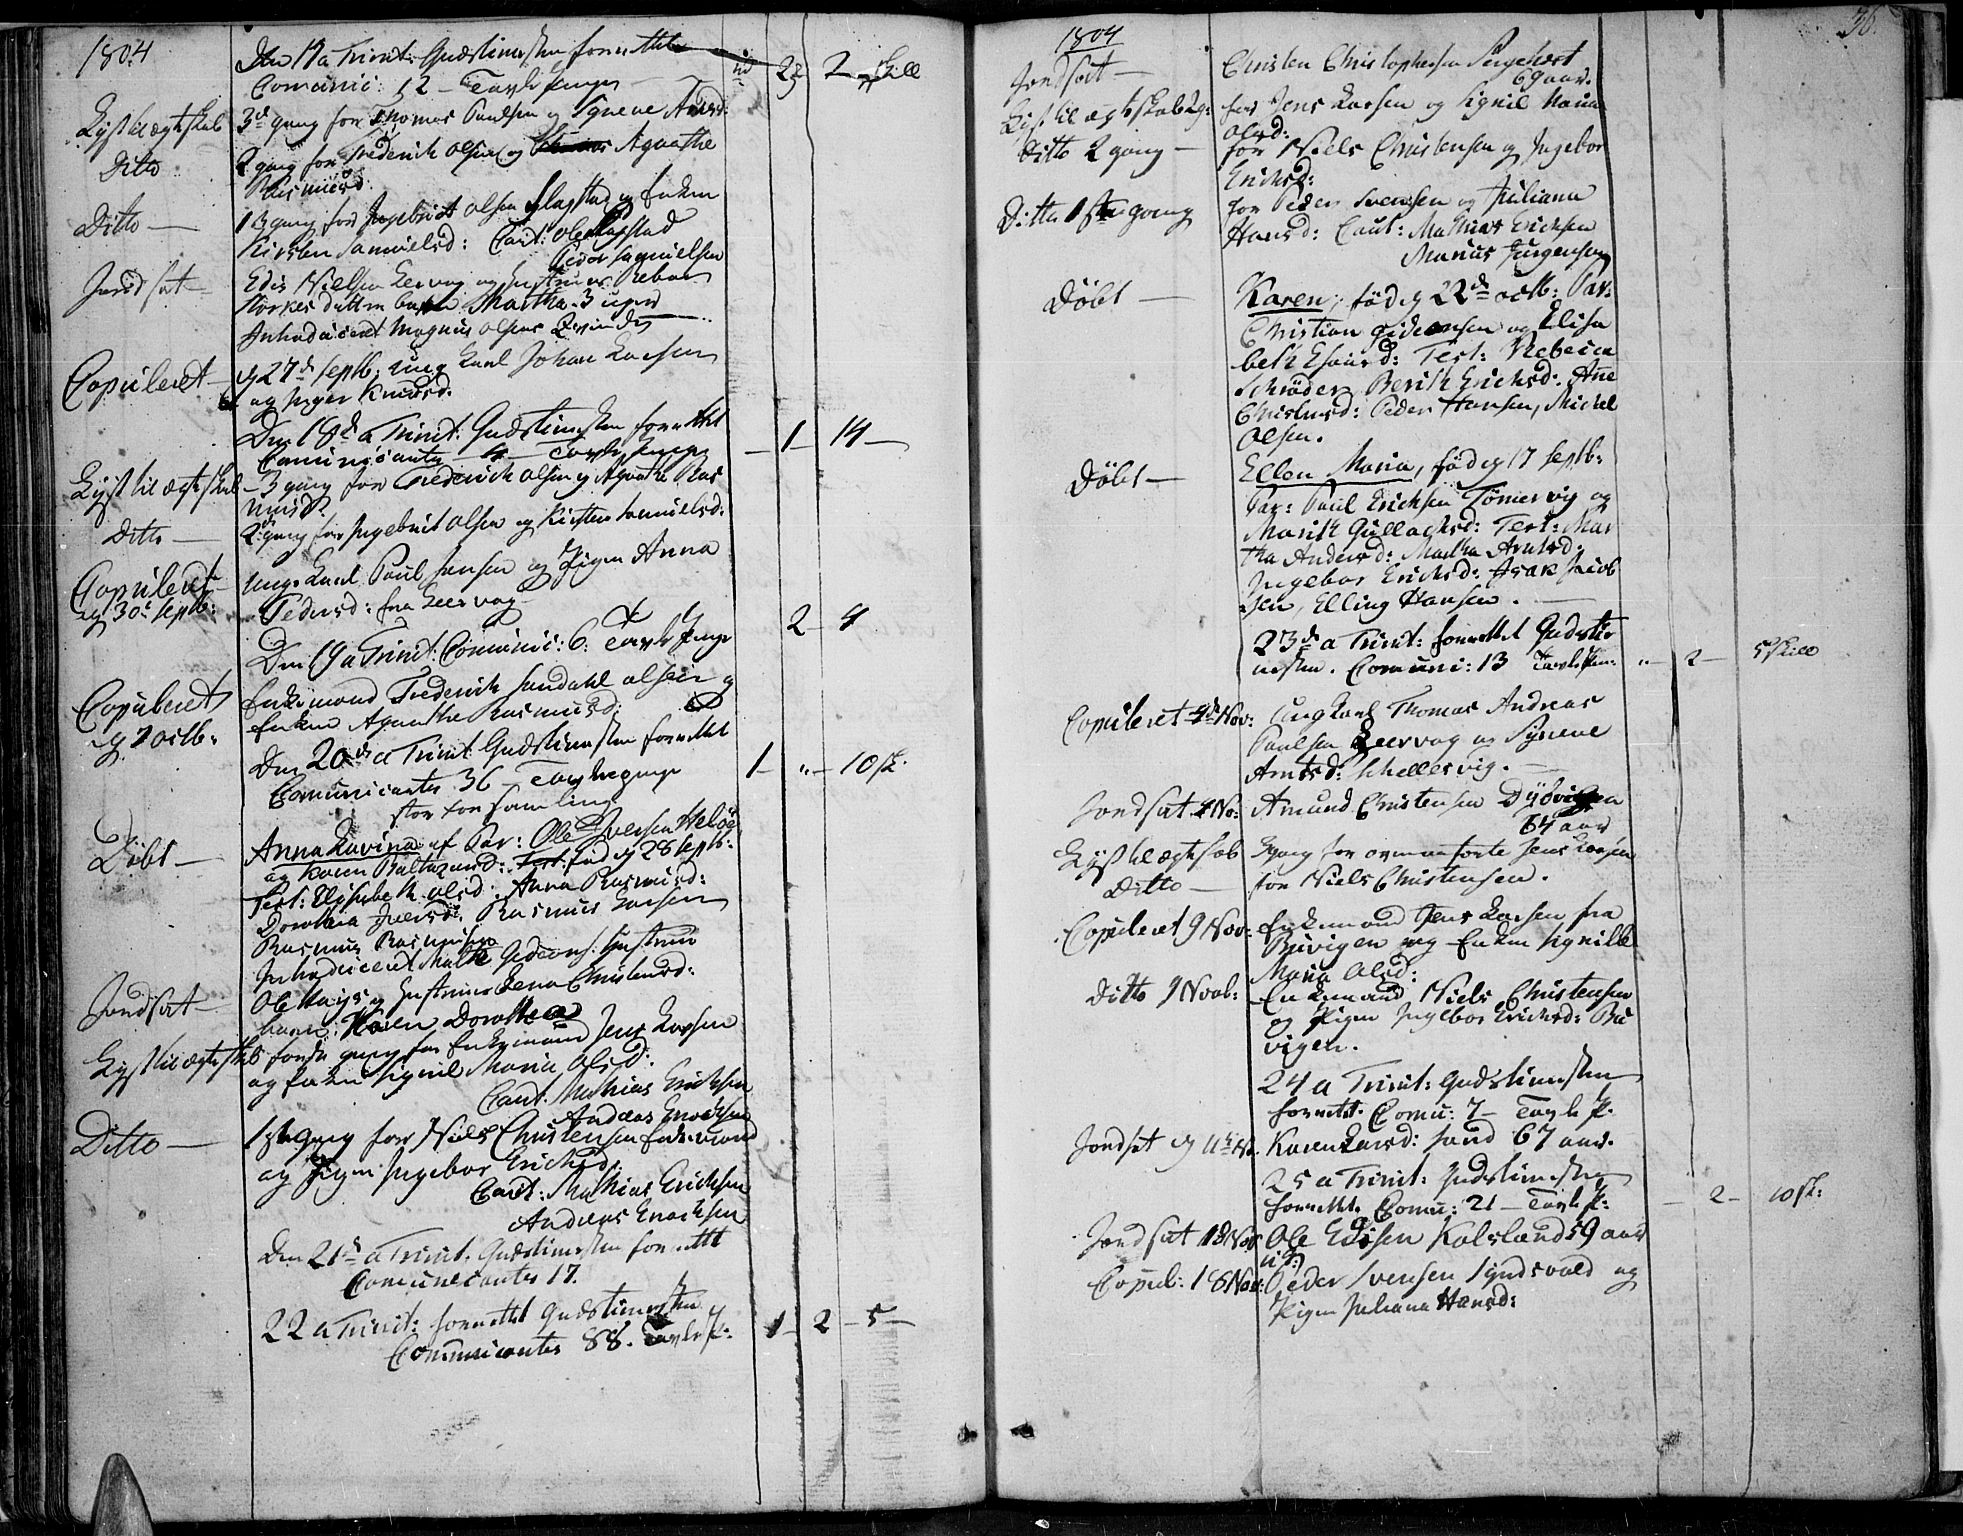 1804
Den 17 a Trinit: Gudstienesten forrettet
Comunic: 12 — Tavle Penge — 2 — 2 — skill
Lyst til ægteskab 3d gang for Thomas Paulsen og Synneve Arntsd:
Ditto 2 gang for Frederich Olsen og Agnethe
Rasmusd:
Ditto — 1ste gang for Ingebrict Olsen Slagstad og Enken
Kirsten Samuelsd: Caut: Ole Slagstad
Peder Samuelsen
Jordsat — Edis Nielsen Leervog og Hustrues
datters barn Martha 3 uger
Introduceret Magnus Olsens Qvinde
Copuleret — d 27d Septb: ung Karl Johan Larsen
og Inger Knudsd:
Den 18d a Trinit: Gudstienesten forrettet
Comunicanter — 4 — Tavle Penge — 1 — 14 —
Lyst til ægteskab — 3 gang for Frederich Olsen og Agnethe Ras
musd:
Ditto — 2 gang for Ingebrict Olsen og Kirsten Samuelsd:
Copuleret — unge Karl Paul Jensen og Pigen Anna
d 30te Septb: Pedersd: fra Leervog
Den 19 a Trinit: Comunic: 6. Tavle Penge 2 — 4
Copuleret Enkemand Frederich Sandahl Olsen og
d 7 octb: Enken Agnethe Rasmusd:
Den 20de a Trinit Gudstienesten forrettet
Comunicanter 36 — Tavlepenge 1 — „ — 10 sk.
stor forsamling
Döbt — Anna Lavina af Par: Ole Iversen Helöe
og Karen Balthazarsd: fød d 28 Septb:
Test: Elisabeth Olsd: Anna Rasmusd:
Dorothea Iversd: Rasmus Larsen
Rasmus Rasmussen
Introduceret Malthe Gideons: Hustrue
Jordsat — Ole Mays og Hustrues Lena Christensd:
barn: Karen Dorothea
Lyst til ægteskab første gang for Enkemand Jens Larsen
og Enken Signil Maria Olsd:
Caut: Mathias Erichsen
Andreas Enochsen
Ditto — 1ste gang for Niels Christensen Enkemand
og Pigen Ingebor Erichsd:
Caut: Mathias Erichsen
Andreas Enochsen
Den 21d a Trinit: Gudstienesten forrettet
Comunicanter 17.
22 a Trinit: forrettet Gudstienesten
Comunicanter 88. Tavle P: 1 — 2 — 5 —
36.
1804
Jordsat — Christen Christophersen
69 aar.
Lyst til ægteskab 2g: for Jens Larsen og Signil Maria
Olsd:
Ditto 2 gang — for Niels Christensen og Ingebor
Erichsd:
Ditto 1ste gang for Peder Svensen og Juliana
Hansd: Caut: Mathias Erichsen
Marius Jürgensen
Döbt — Karen, fød d 22d octb: Par:
Christian Gideonsen og Elisa
beth Esaiasd: Test: Rebecca
Schröder Berith Erichsd: Ane
Christensd: Peder Hansen, Michel
Olsen.
Döbt — Ellen Maria, fød d 17 Septb:
Par: Paul Erichsen Tömervig og
Marith Gullachsd: Test: Mar
tha Andersd: Martha Arntsd:
Ingebor Erichsd: Isak Jacob
sen, Elling Hansen. —
23de a Trinit: forrettet Gudstie
nesten. Comuni: 13 Tavle Pen: „ — 2 — 5 skill
Copuleret 4d Nov: Ungkarl Thomas Andreas
Paulsen Leervog og Synneve
Arntsd: Schellesvig. —
Jordsat 4 No: Amund Christensen Dybvigen
64 aar
Lyst til ægteskab 3 gang for ovenanførte Jens Larsen
Ditto — for Niels Christensen.
Copuleret 9 Nov: Enkemand Jens Larsen fra
Buvigen og Enken Signille
Maria Olsd:
Ditto 9 Novb: Enkemand Niels Christensen
og Pigen Ingebor Erichsd: Bu
vigen.
24 a Trinit: Gudstienesten
forrettet. Comu: 7 — Tavle P.
Jordsat d 11te N. Karen Larsd: Sund 67 aar.
25 a Trinit: Gudstienesten
forrettet. Comu: 21 — Tavle P: — 2 — 10 sk:
Jordsat 18 Nov Ole Edisen Kalsland 59 aar
Copul: 18 Nov: Peder Svensen Syndsvold og
Pigen Juliana Hansd: